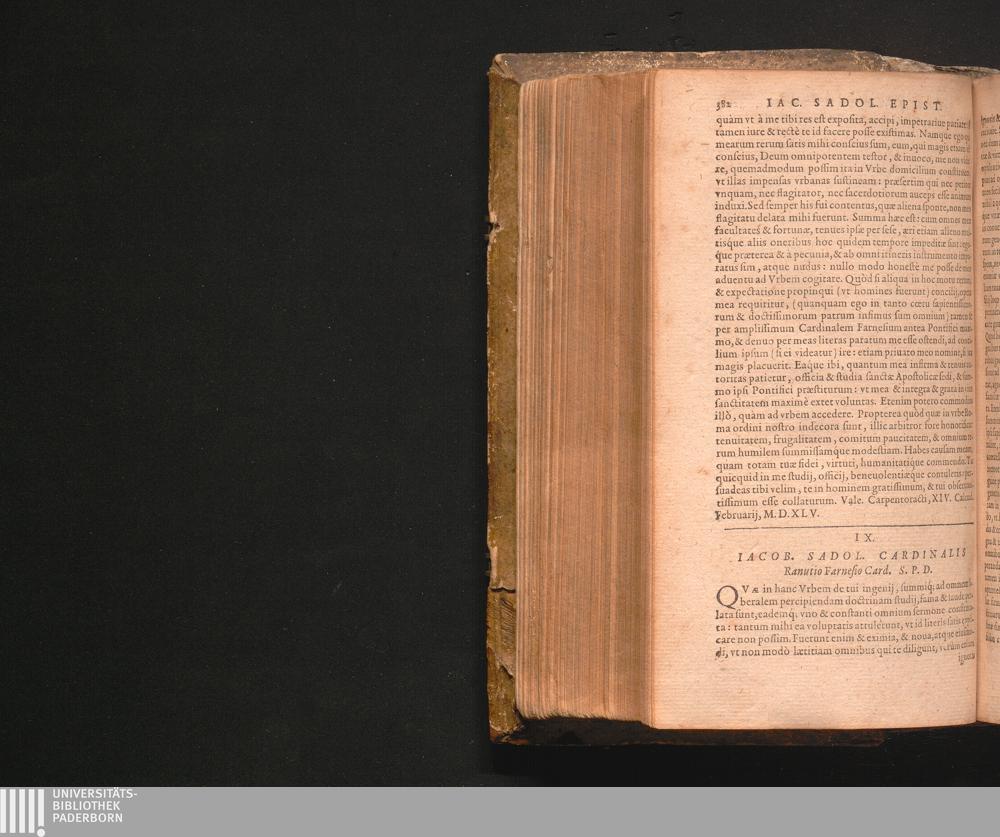 382 IAC. SADOL. EPIST.
quàm vt à me tibi res est exposita, accipi, impetrariue
tamen iure & rectè te id facere posse existimas. Namque ego
mearum rerum satis mihi conscius sum, eum, qui magis etiam
conscius, Deum omnipotentem testor, & inuoco, me non
re, quemadmodum possim ita in Vrbe domicilium
vt illas impensas vrbanas sustineam: præsertim qui nec
vnquam, nec flagitator, nec sacerdotiorum auceps esse animum
induxi. Sed semper his fui contentus, quæ aliena sponte, non
flagitatu delata mihi fuerunt. Summa hæc est: cum omnes
facultates & fortunæ, tenues ipsæ per sese, æri etiam alieno
tisque aliis oneribus hoc quidem tempore impeditæ sint:
que præterea & à pecunia, & ab omni itineris instrumento
ratus sim, atque nudus: nullo modo honestè me posse de
aduentu ad Vrbem cogitare. Quòd si aliqua in hoc motu rerum,
& expectatione propinqui (vt homines fuerunt) concilij, opera
mea requiritur, (quanquam ego in tanto cœtu
rum & doctissimorum patrum infimus sum omnium) tamen
per amplissimum Cardinalem Farnesium antea Pontifici
mo, & denuo per meas literas paratum me esse ostendi, ad
lium ipsum (si ei videatur) ire: etiam priuato meo nomine,
magis placuerit. Eaque ibi, quantum mea infirma & tenuis
toritas patietur, officia & studia sanctæ Apostolicæ sedi, &
mo ipsi Pontifici præstiturum: vt mea & integra & grata in
sanctitatem maximè extet voluntas. Etenim potero
illò, quàm ad vrbem accedere. Propterea quòd quæ in vrbe
ma ordini nostro indecora sunt, illic arbitror fore
tenuitatem, frugalitatem, comitum paucitatem, & omnium
rum humilem summissamque modestiam. Habes causam meam,
quam totam tuæ fidei, virtuti, humanitatique commendo.
quicquid in me studij, officij, beneuolentiæque contuleris:
suadeas tibi velim, te in hominem gratissimum, & tui
tissimum esse collaturum. Vale. Carpentoracti, XIV.
Februarij, M.D.XLV.
IX.
IACOB. SADOL. CARDINALIS
Ranutio Farnesio Card. S. P. D.
QVæ in hanc Vrbem de tui ingenij, summiq; ad omnem
beralem percipiendam doctrinam studij, fama & laude
lata sunt, eademq; vno & constanti omnium sermone
ta: tantum mihi ea voluptatis attulerunt, vt id literis satis
care non possim. Fuerunt enim & eximia, & noua, atque
di, vt non modò lætitiam omnibus qui te diligunt, verùm etiam
UNIVERSITÄTS-
BIBLIOTHEK
PADERBORN